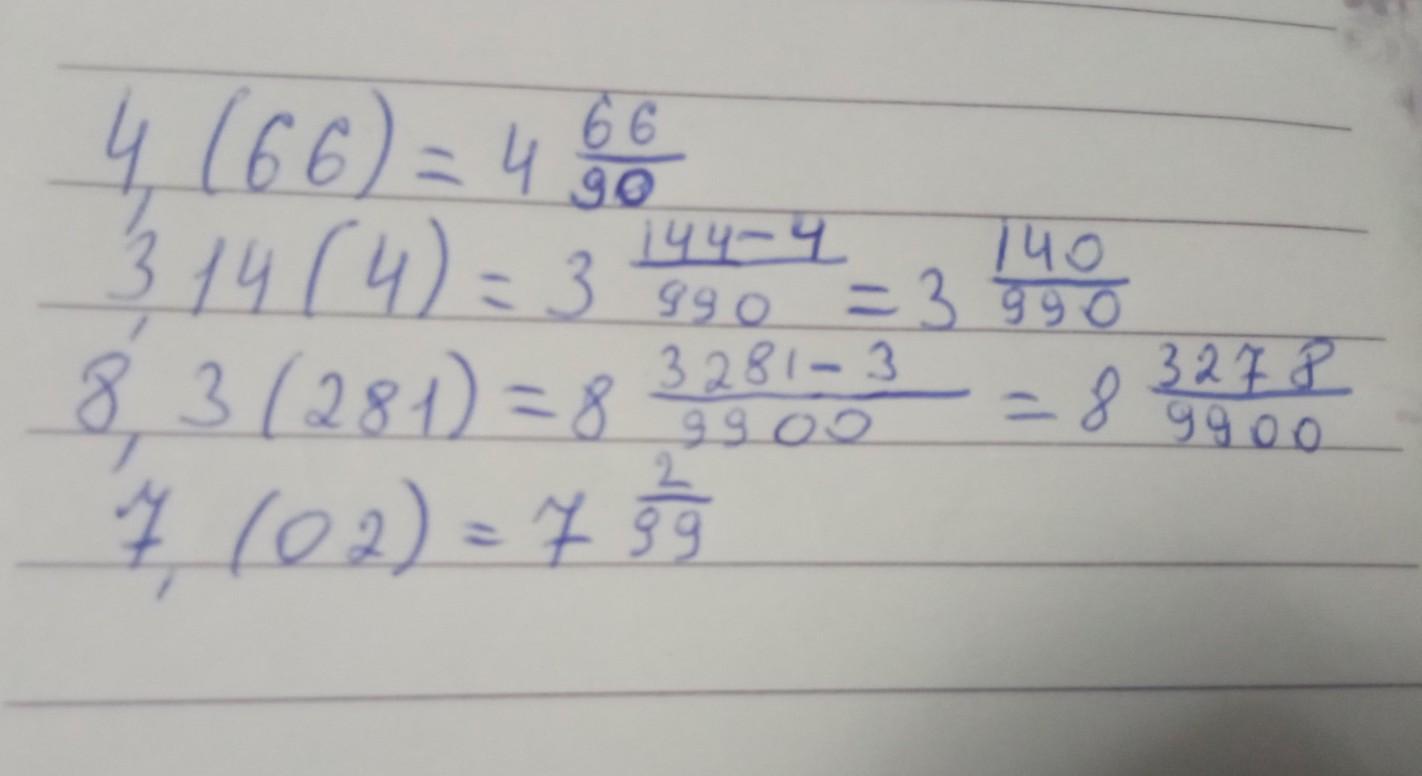 4, (66) = 4 66/90
3, 14(4) = 3 144-4/990 = 3 140/990
8, 3(281) = 8 3281-3/9900 = 8 3278/9900
7, (02) = 7 2/99